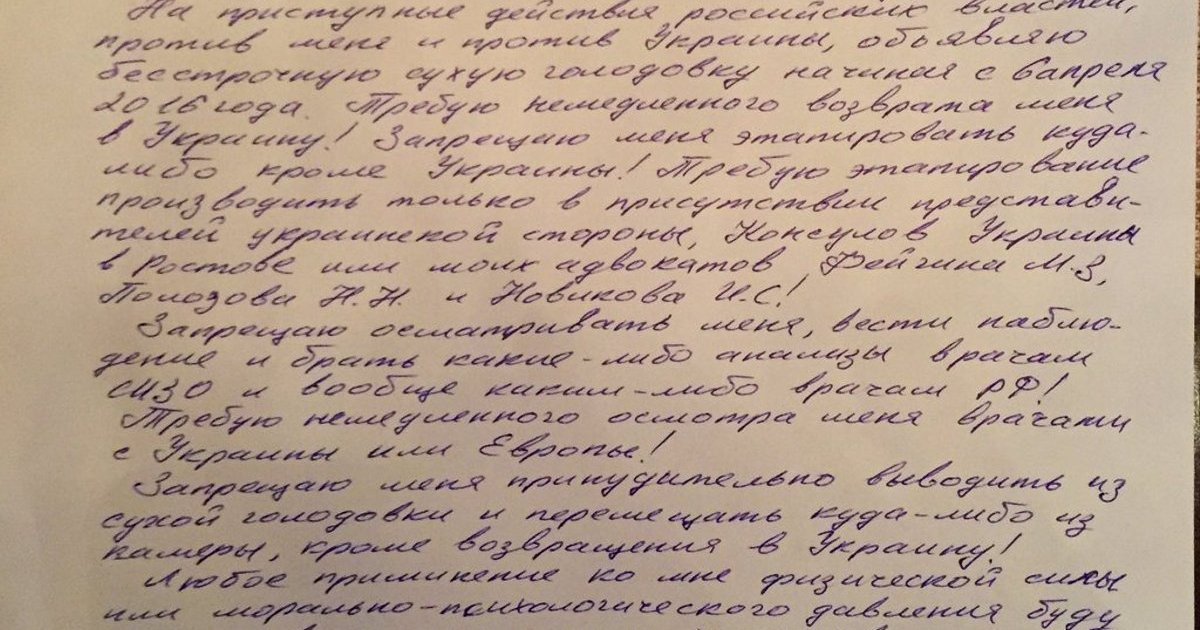 На приступные действия российских властей,
против меня и против Украины, объявляю
бесстрочную сухую голодовку начиная с 6 апреля
2016 года. Требую немедленного возврата меня
в Украину! Запрещаю меня этапировать куда-
либо кроме Украины! Требую этапирование
производить только в присутствии представи-
телей украинской стороны, Консулов Украины
в Ростове или моих адвокатов Фейгина М.З,
Полозова Н.Н. и Новикова И.С!
Запрещаю осматривать меня, вести наблю-
дение и брать какие-либо анализы врачам
СИЗО и вообще каким-либо врачам РФ!
Требую немедленного осмотра меня врачами
с Украины или Европы!
Запрещаю меня принудительно выводить из
сухой голодовки и перемещать куда-либо из
камеры, кроме возвращения в Украину!
Любое приминение ко мне физической силы
или морально-психологического давления буду